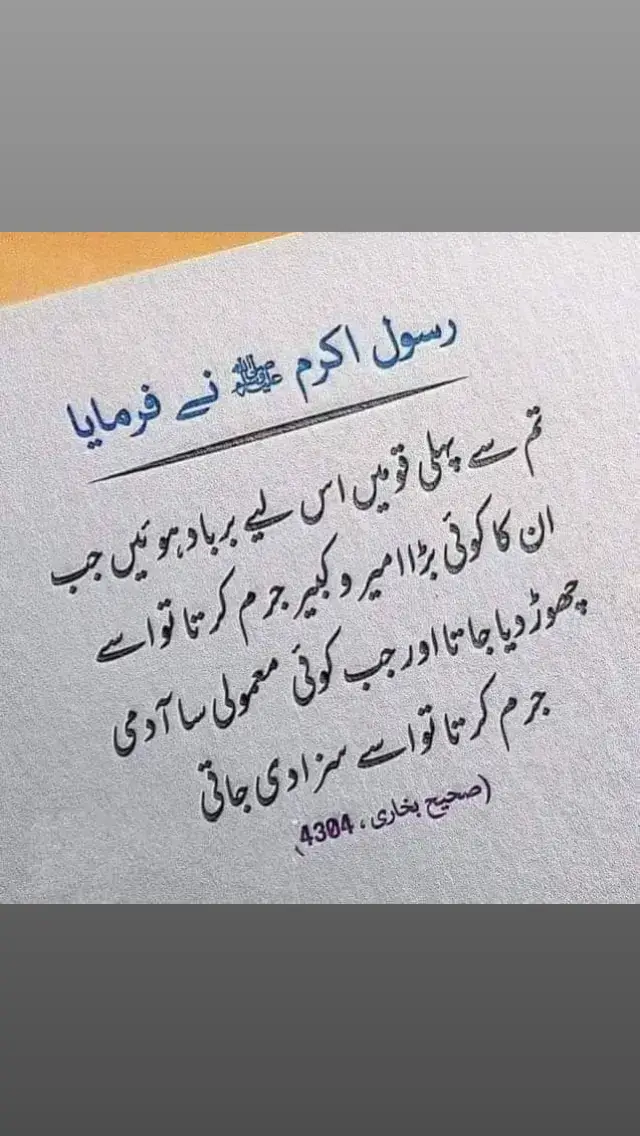 رسول اکرم ﷺ نے فرمایا
تم سے پہلی قومیں اس لیے برباد ہوئیں جب
ان کا کوئی بڑا امیر و کبیر جرم کرتا تو اسے
چھوڑ دیا جاتا اور جب کوئی معمولی سا آدمی
جرم کرتا تو اسے سزا دی جاتی
(صحیح بخاری، 4304)